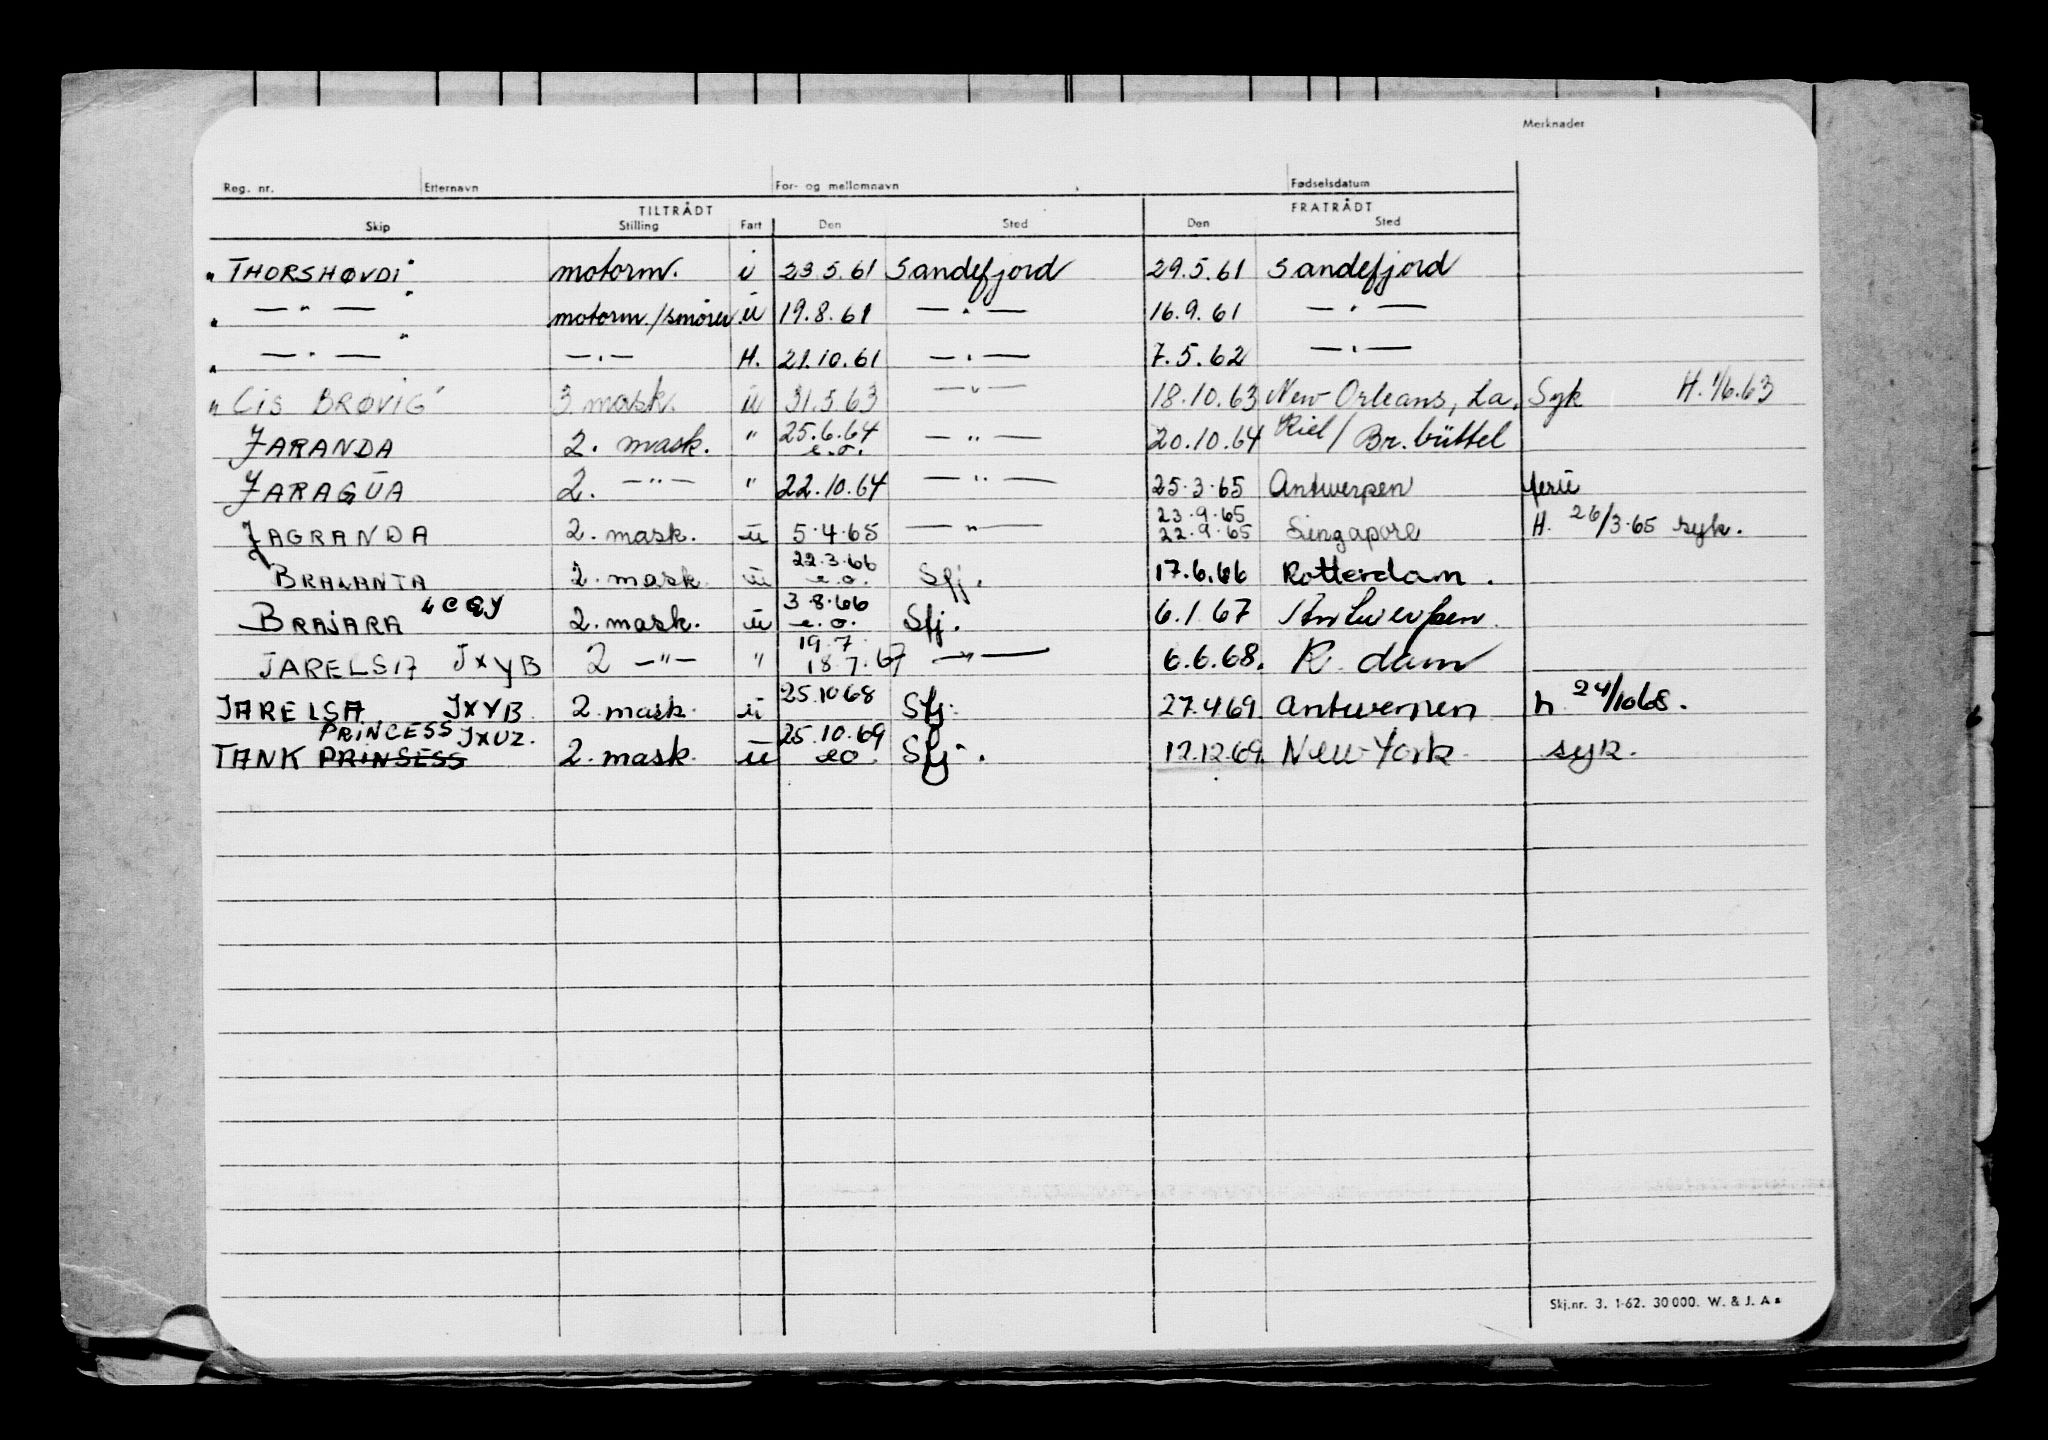 Merknader
Reg. nr. Etternavn For- og mellomnavn Fødselsdatum
TILTRÅDT FRATRÅDT
Skip Stilling Fart Den Sted Den Sted
"THORSHØVDI" motorm. ü 23.5.61 Sandefjord 29.5.61 Sandefjord
" — " — " motorm./smører ü 19.8.61 — " — 16.9.61 — " —
" — " — " — " — H. 21.10.61 — " — 7.5.62 — " —
"CIS BRØVIG" 3 mask. ü 31.5.63 — " — 18.10.63 New Orleans, La. Syk H. 1/6.63
JARANDA 2. mask. " 25.6.64 e.o. — " — 20.10.64 Kiel/Br.büttel
JARAGUA 2. — " — " 22.10.64 — " — 25.3.65 Antwerpen ferie
23.9.65
JAGRANDA 2. mask. ü 5.4.65 — " — 22.9.65 Singapore H. 26/3.65 syk.
22.3.66
BRALANTA 2. mask. ü e.o. Sfj. 17.6.66 Rotterdam.
3.8.66
BRAJARA "CQY 2. mask. ü e.o. Sfj. 6.1.67 Antwerpen.
19.7
JARELSA JXYB 2 — " — " 18.7.67 — " — 6.6.68. R. dam
JARELSA JXYB 2. mask. ü 25.10.68 Sfj. 27.4.69. Antwerpen h 24/10 68.
PRINCESS JXUZ. 25.10.69
TANK PRINSESS 2. mask. ü eo. Sfj. 12.12.69. New York. syk.
Skj.nr. 3. 1-62. 30000. W. & J. As